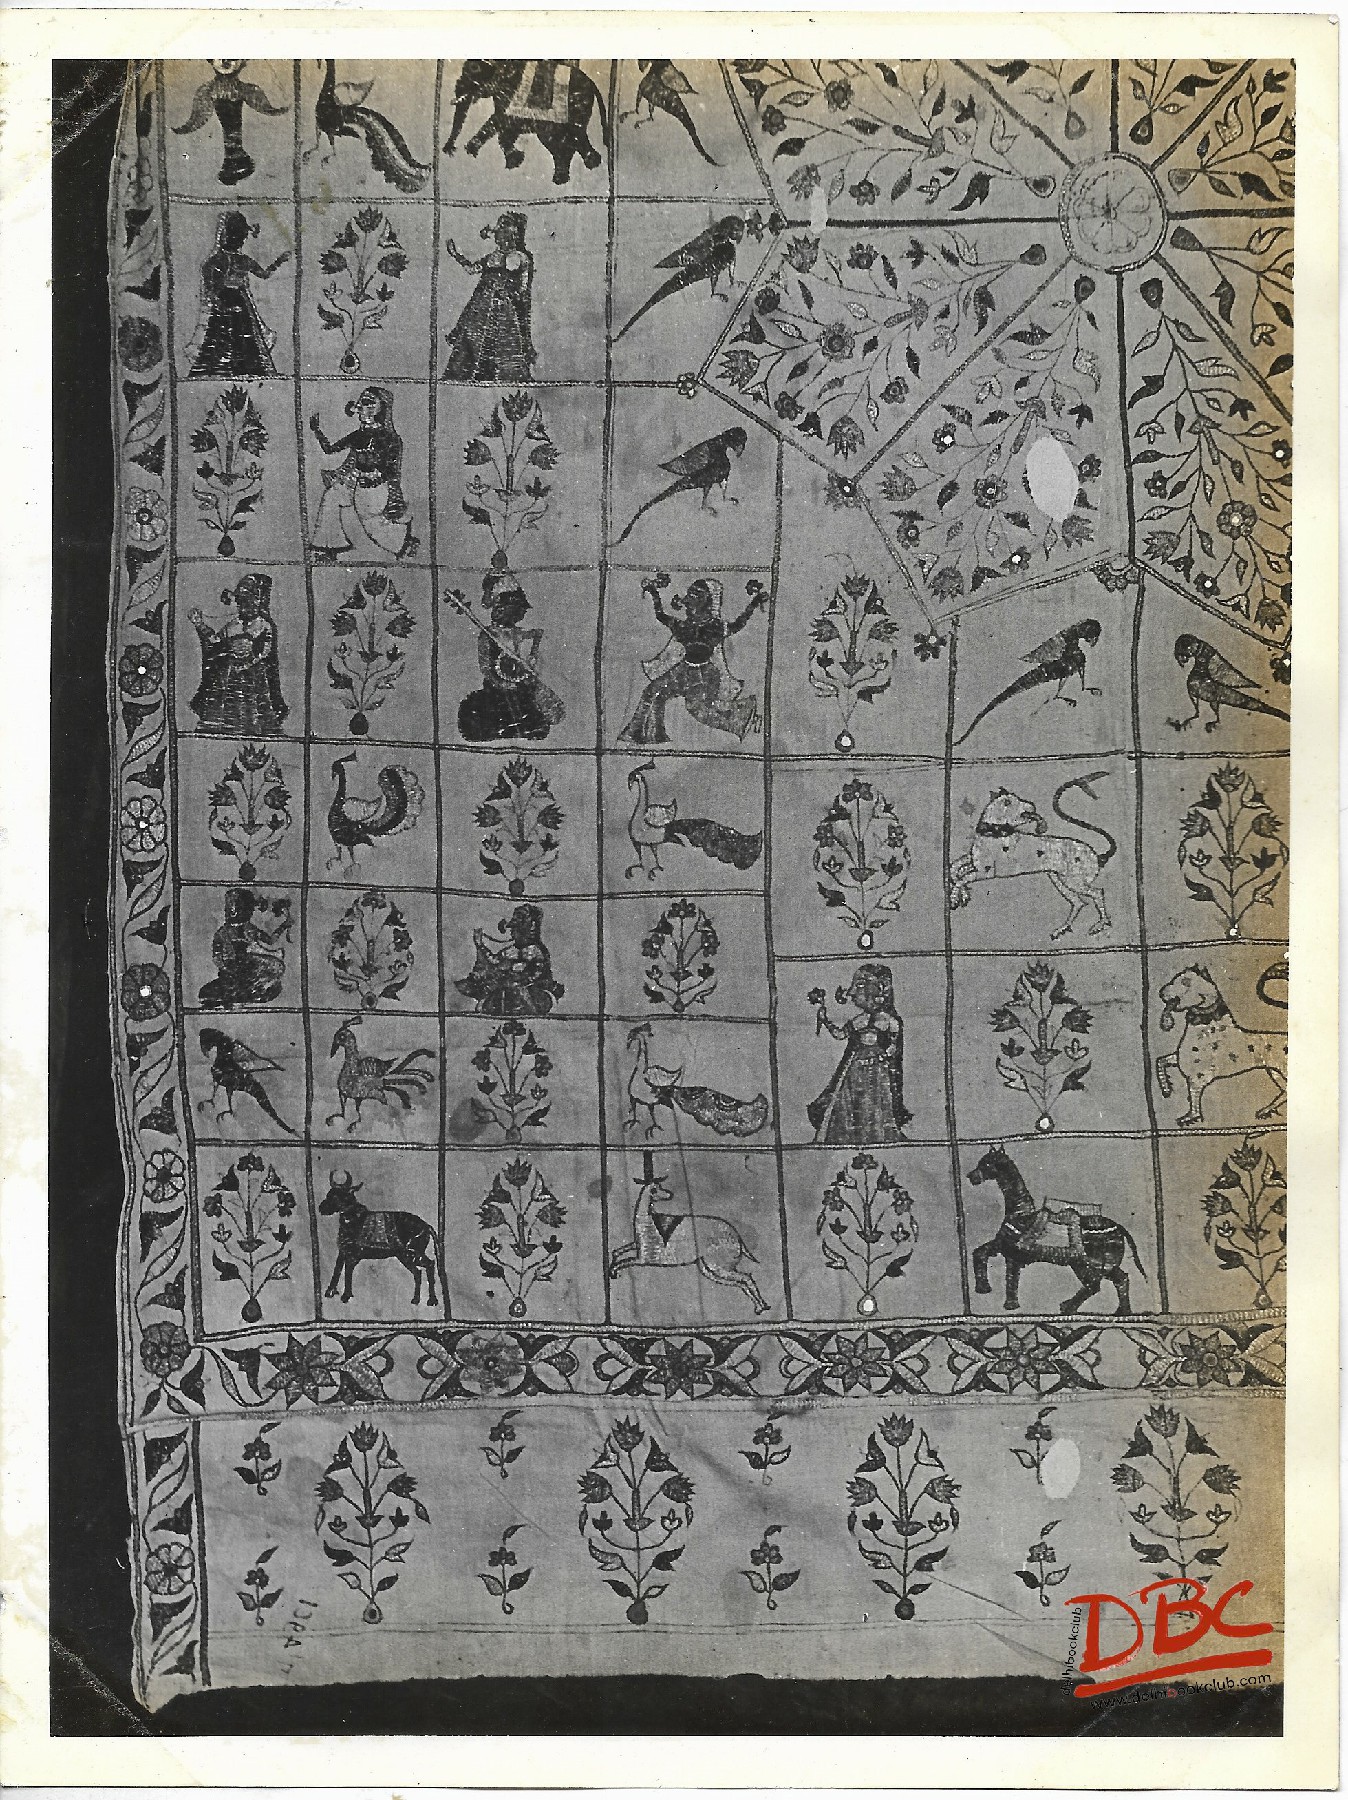 DBC
delhibookclub
www.delhibookclub.com